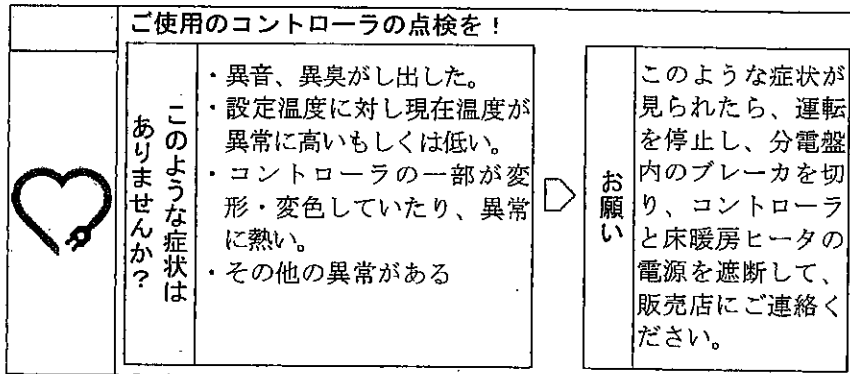 ご使用のコントローラの点検を！
このような症状は
ありませんか？
・異音、異臭がし出した。
・設定温度に対し現在温度が
異常に高いもしくは低い。
・コントローラの一部が変
形・変色していたり、異常
に熱い。
・その他の異常がある
お願い
このような症状が
見られたら、運転
を停止し、分電盤
内のブレーカを切
り、コントローラ
と床暖房ヒータの
電源を遮断して、
販売店にご連絡く
ださい。